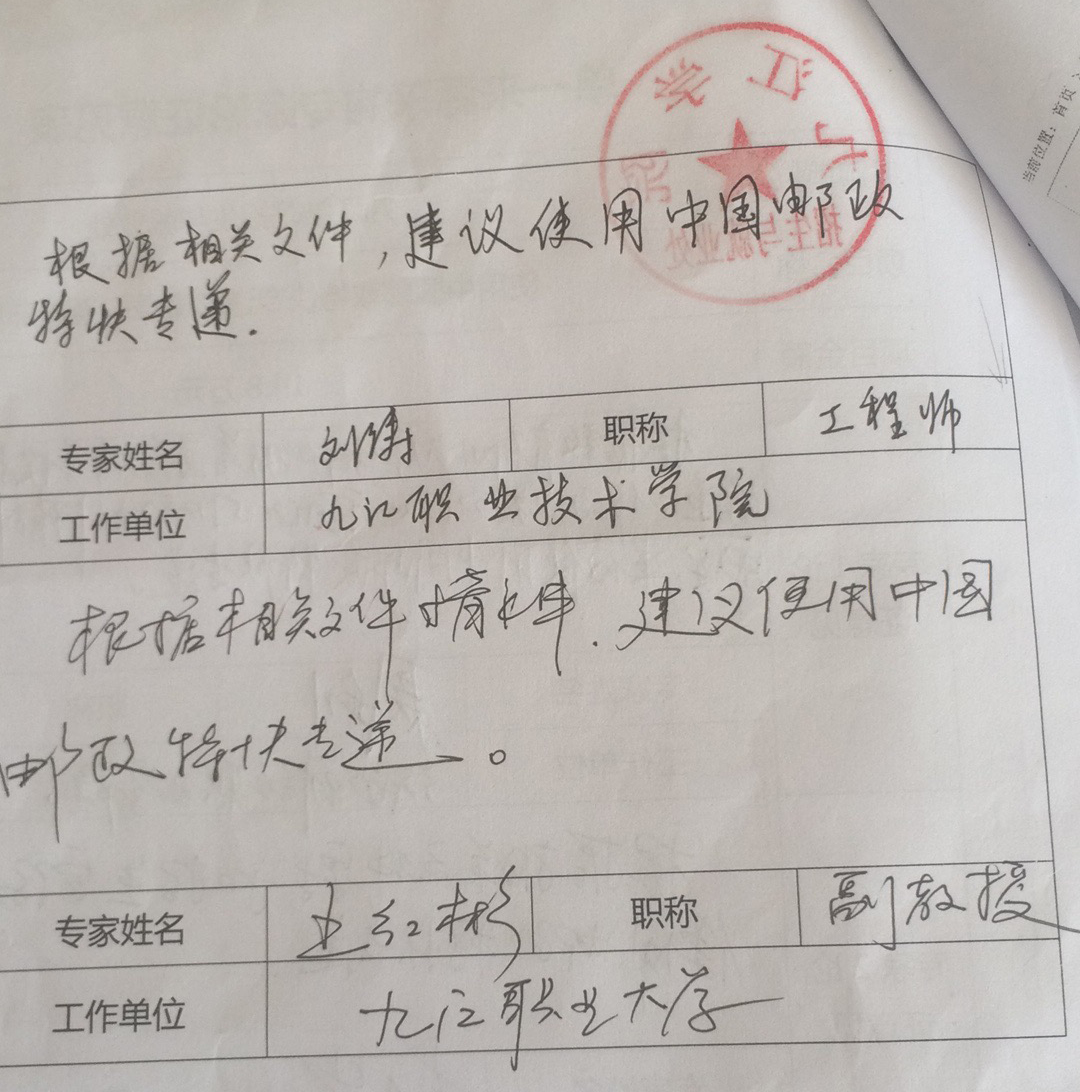 当前位置：首页
九江学院
招生与就业处
根据相关文件，建议使用中国邮政
特快专递.
专家姓名 刘涛 职称 工程师
工作单位 九江职业技术学院
根据相关文件精神.建议使用中国
邮政特快专递。
专家姓名 红彬 职称 副教授
工作单位 九江职业大学